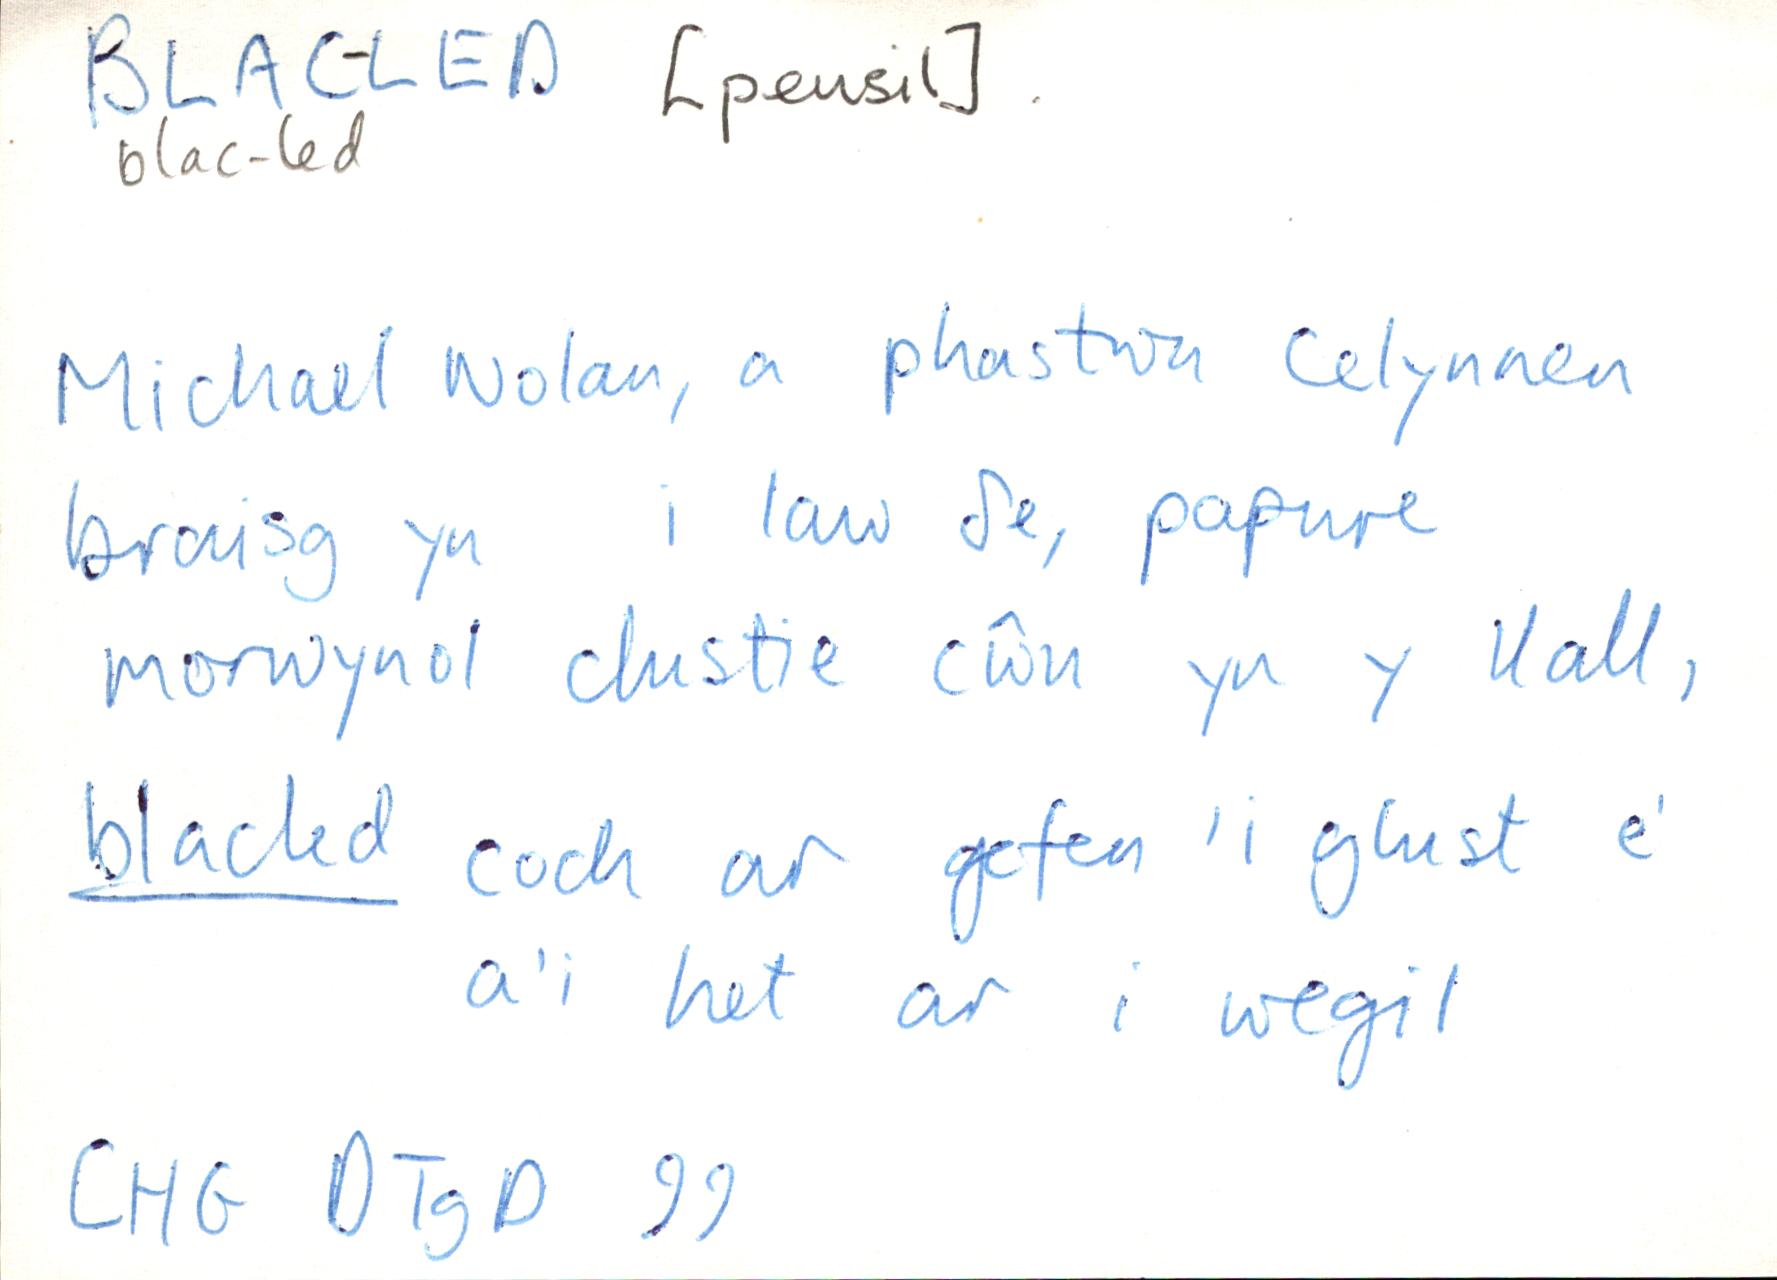 BLAC-LED [pensil].
blac-led
Michael Nolan, a phastwn Celynnen
braisg yn i law dde, papure
morwynol clustie cŵn yn y llall,
blacled coch ar gefen 'i glust e'
a'i het ar i wegil
CHG DTgD 99